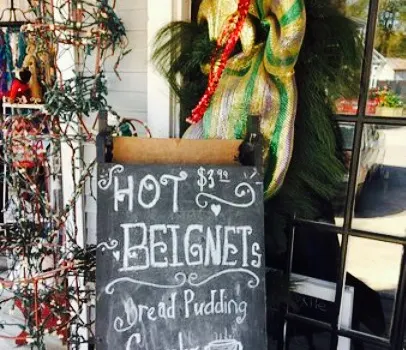 HOT $3.99
BEIGNETs
Bread Pudding